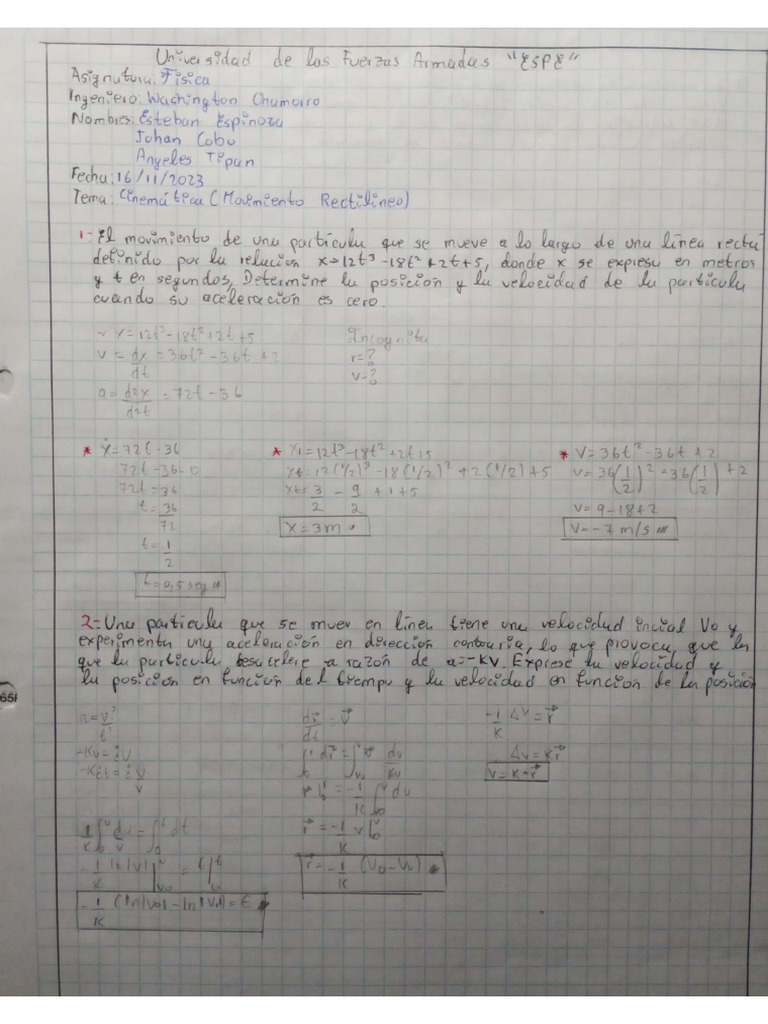 Universidad de las Fuerzas Armadas "ESPE"
Asignatura: Física
Ingeniero: Washington Chumorro
Nombres: Esteban Espinoza
Johan Cobo
Angeles Tipan
Fecha: 16/11/2023
Tema: Cinemática (Movimiento Rectilineo)
1- El movimiento de una particula que se mueve a lo largo de una línea recta
definido por la relacion x=12t³-18t²+2t+5, donde x se expresa en metros
y t en segundos, Determine la posición y la velocidad de la particula
cuando su aceleración es cero.
x=12t³-18t²+2t+5 Incognita
v = dx/dt = 36t² - 36t + 2 r=?
v=?
a = d²x/d²t = 72t - 36
* ẍ=72t-36 * x1=12t³-18t²+2t+5 * v=36t²-36t+2
72t-36=0 xt=12(1/2)³-18(1/2)²+2(1/2)+5 v=36(1/2)²-36(1/2)+2
72t=36 3/2 - 9/2 +1+5 v=9-18+2
t=36/72 x=3m v=-7 m/s
t=1/2
t=0,5 seg
2- Una particula que se muev en línea tiene una velocidad incial Vo y
experimenta una aceleración en dirección contraria, lo que provoca, que la
que la particula desacelere a razón de a=-kv. Exprese la velocidad y
la posición en función del tiempo y la velocidad en función de la posición
dr/dt = v -1/k Δv = r
Δv=kr
v=k·r
∫dv/v = ∫dt r = -1/k v
-1/k ln|v| = t r = -1/k (Vo-V2)
-1/k (ln|vo|-ln|v1|)=t